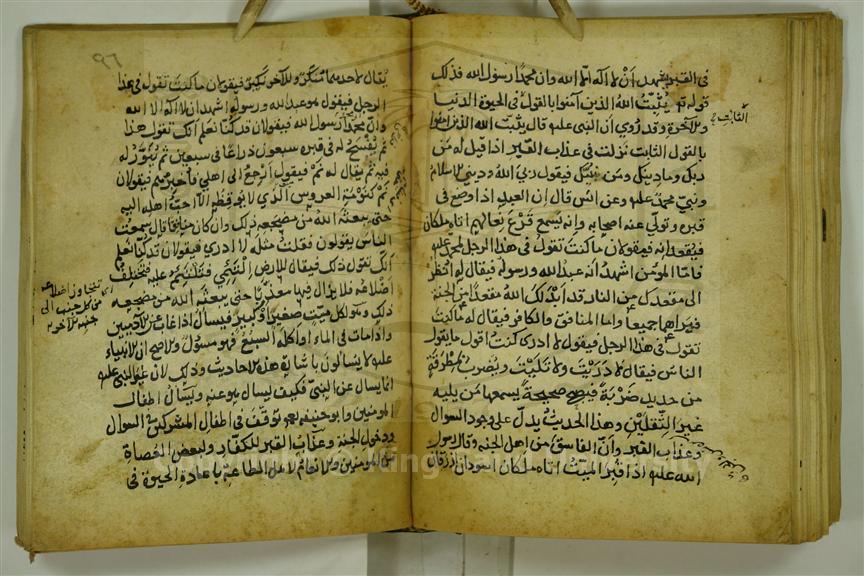 فى القبر يشهد ان لا اله الا الله وان محمدا رسول الله فذلك
قوله تع يثبت الله الذين آمنوا بالقول فى الحيوة الدنيا
الثابت
وفى الآخرة وقد روي ان النبى عليه قال يثبت الله الذين امنوا
بالقول الثابت نزلت فى عذاب القبر اذا قيل له من
ربك وما دينك ومن نبيك فيقول ربى الله ودينى الاسلام
ونبيى محمد عليه وعن انس قال ان العبد اذا وضع فى
قبره وتولى عنه اصحابه وانه يسمع قرع نعالهم اتاه ملكان
فيقعدانه فيقولان ما كنت تقول فى هذا الرجل لمحمد عليه
فاما المؤمن اشهد انه عبد الله ورسوله فيقال له انظر
الى مقعدك من النار قد ابدلك الله مقعدا من الجنة
فيراهما جميعا واما المنافق والكافر فيقال له ما كنت
تقول فى هذا الرجل فيقول لا ادرى كنت اقول ما يقول
الناس فيقال لا دريت ولا تليت ويضرب بمطرقة
من حديد ضربة فيصيح صيحة يسمعها من يليه
غير الثقلين وهذا الحديث يدل على وجود السوال
وعذاب القبر وان الفاسق من اهل الجنة وقال رسول
الله عليه اذا قبر الميت اتاه ملكان اسودان ازرقان
٩٦
يقال لاحدهما منكر وللآخر نكير فيقولان ما كنت تقول فى هذا
الرجل فيقول هو عبد الله ورسوله اشهد ان لا اله الا الله
وان محمدا رسول الله فيقولان قد كنا نعلم انك تقول هذا
ثم يفسح له فى قبره سبعون ذراعا فى سبعين ثم ينور له
فيه ثم يقال له نم فيقول ارجع الى اهلى فاخبرهم فيقولان
نم كنومة العروس الذي لا يوقظه الا احب اهله اليه
حتى يبعثه الله من مضجعه ذلك وان كان منافقا قال سمعت
الناس يقولون فقلت مثله لا ادرى فيقولان قد كنا نعلم
انك تقول ذلك فيقال للارض التئمي فتلتئم عليه فتختلف
اضلاعه فلا يزال فيها معذبا حتى يبعثه الله من مضجعه
من كل جنب الى
جنبه الآخر
ذلك وهو لكل ميت صغير او كبير فيسأل اذا غاب عن الآدميين
واذا مات فى الماء او اكله السبع فهو مسؤل والاصح ان الانبياء
عليه لا يسالون
انما يسال عن النبى فكيف يسال هو عنه ويسأل اطفال
المومنين وابو حنيفة توقف فى اطفال المشركين فى السوال
ودخول الجنة وعذاب القبر للكفار ولبعض العصاة
من المومنين والانعام لاهل الطاعة باعادة الحيوة فى